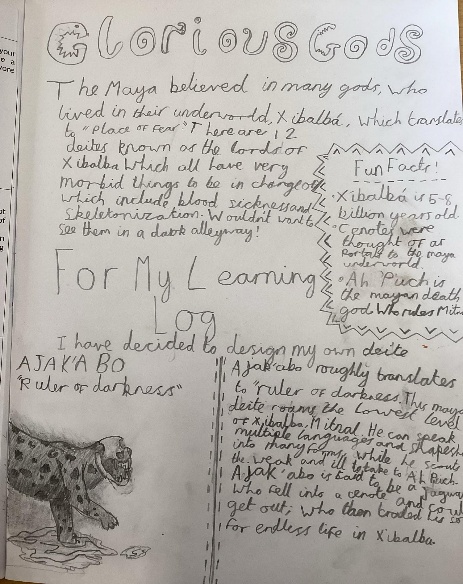 Glorious Gods
The Maya believed in many gods, who
lived in their underworld, Xibalbá, which translates
to "place of Fear" There are 12
deites known as the lords of
Xibalba which all have very
morbid things to be in charge of
which include blood sickness and
skeletonization. Wouldn't want to
see them in a dark alleyway!
Fun Facts!
Xibalbá is 5-8
billion years old
Cenotes were
thought of as
Portals to the maya
underworld
Ah Puch is
the mayan death
god who rules
For My Learning
Log
I have decided to design my own deite
AJAK'ABO
"Ruler of darkness"
Ajak'abo roughly translates
to "ruler of darkness. This
deite roams the lowest level
of Xibalba, Mitnal. He can speak
multiple languages and
into many forms, while he scouts
the weak and ill to take to Ah Puch.
Ajak'abo is said to be a
who fell into a cenote and
get out; who then traded his
for endless life in Xibalba.